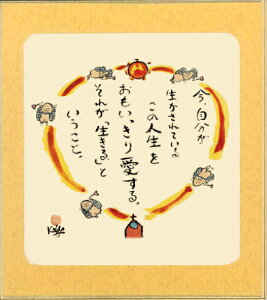 今、自分が
生かされている
この人生を
おもいっきり愛する。
それが「生きる」と
いうこと。